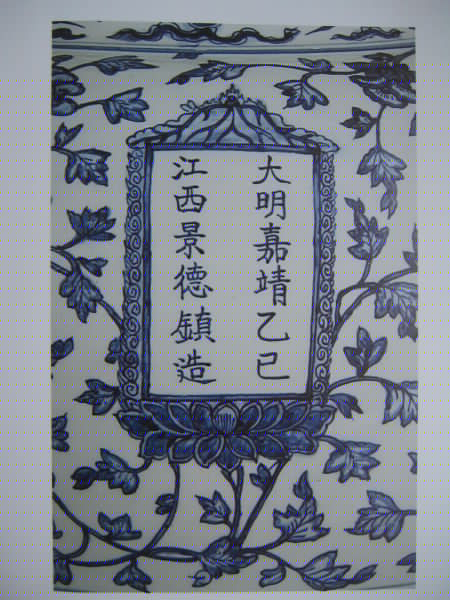 大明嘉靖乙巳
江西景德鎮造